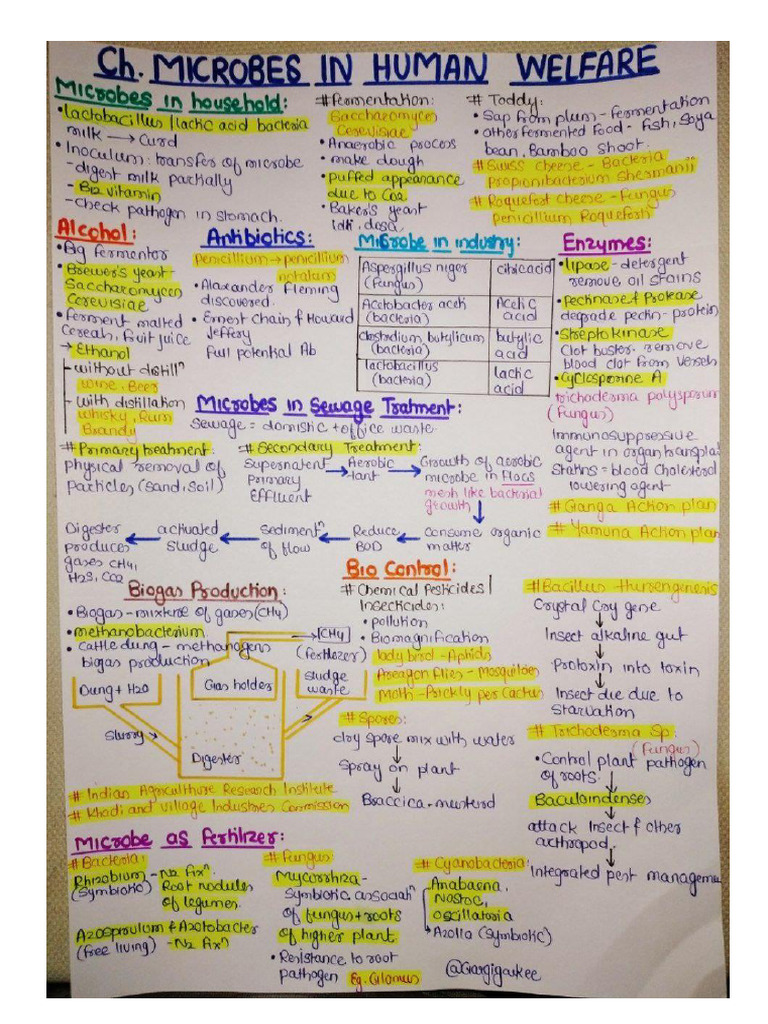 Ch. MICROBES IN HUMAN WELFARE
Microbes in household:
• Lactobacillus / lactic acid bacteria
milk → Curd
• Inoculum: transfer of microbe
- digest milk partially
- B12 vitamin
- Check pathogen in stomach.
# Fermentation:
Saccharomyces
Cerevisiae
• Anaerobic process
• make dough
• puffed appearance
due to CO2
• Baker's yeast
idli, dosa
# Toddy:
• Sap from plum - fermentation
• other fermented food - fish, Soya
bean, Bamboo shoot.
# Swiss cheese - Bacteria
propionibacterium Shermanii
# Roquefest cheese - Fungus
penicillium Roquefesti
Alcohol:
• Big fermentor
• Brewer's yeast -
Saccharomyces
Cerevisiae
• Ferment malted
cereals, fruit juice
→ Ethanol
- without distilln
wine, Beer
- With distillation
whisky, Rum
Brandy
Antibiotics:
Penicillium → penicillium
notatum
• Alaxander Fleming
discovered.
• Ernest Chain & Howard
Jeffery
Full potential Ab
Microbe in industry:
Aspergillus niger
(fungus)
citric acid
Acetobacter aceti
(bacteria)
Acetic
acid
clostridium butylicum
(bacteria)
butylic
acid
lactobacillus
(bacteria)
lactic
acid
Enzymes:
• lipase - detergent
remove oil stains
• pectinase & Protease
degrade pectin - protein
• Streptokinase
Clot buster - remove
blood clot from vessels
• Cyclosporine A
trichoderma polysporum
(fungus)
Immunosuppressive
agent in organ transplat
Statins = blood Cholesterol
lowering agent
# Ganga Action plan
# Yamuna Action plan
Microbes in Sewage Tratment:
Sewage = domistic + office waste
# Primary treatment:
physical removal of
Particles (sand, soil)
# Secondary Treatment:
Supernatent
Primary
Effluent
→ Aerobic
tant
→ Growth of aerobic
microbe in Flocs
mesh like bacterial
growth
Consume organic
matter
Reduce
BOD
Sedimentn
of flow
activated
sludge
Digester
produces
gases CH4,
H2S, CO2
Biogas Production:
• Biogas - mixture of gases (CH4)
• methanobacterium.
• Cattle dung - methanogens
biogas production
→ CH4
(fertilozer)
Dung + H2O
Gas holder
sludge
waste
Slurry
Digester
# Indian Agriculthure Research Institute
# Khadi and village Industries Commission
Bio Control:
# Chemical Pesticides /
Insecticides:
• pollution
• Biomagnification
lady bird - Aphids
Areagon flies - Mosquitoes
Moth - Prickly per Cactus
# Spores:
dry spore mix with water
Spray on plant
Braccica - musterd
# Bacillus thurengenesis
Crystal Cry gene
Insect alkaline gut
Protoxin into toxin
Insect due due to
Starvation
# Trichoderma Sp:
(Fungus)
• Control plant pathogen
of roots.
Baculoindenses
attack Insect & other
arthropod.
Integrated pest manageme
Microbe as Fertilizer:
# Bacteria:
Rhizobium - N2 fixn
(Symbiotic) Root nodules
of legumes.
Azospirulum & Azotobacter
(free living) - N2 fixn
# Fungus:
Mycorrhiza -
Symbiotic associatn
of fungus + roots
of higher plant
• Resistance to root
pathogen Eg. Glomus
# Cyanobacteria:
Anabaena,
Nostoc,
oscillatoria
Azolla (symbiotic)
@Gargigaukee